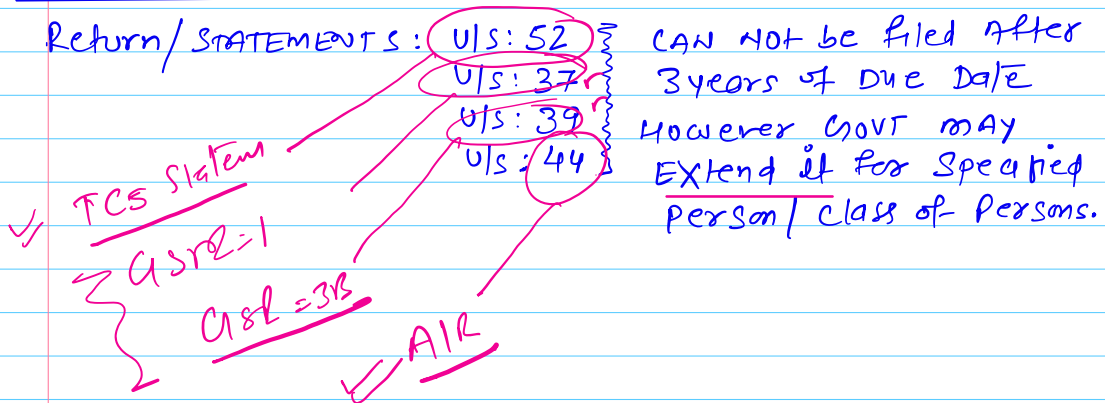 Return/STATEMENTS: U/S: 52 CAN NOt be filed After
U/S: 37 3 years of Due Date
U/S: 39 However Govt MAY
U/S: 44 EXtend it for Specified
person/class of Persons.
TCS Statem
GSTR=1
GSR=3B
AIR